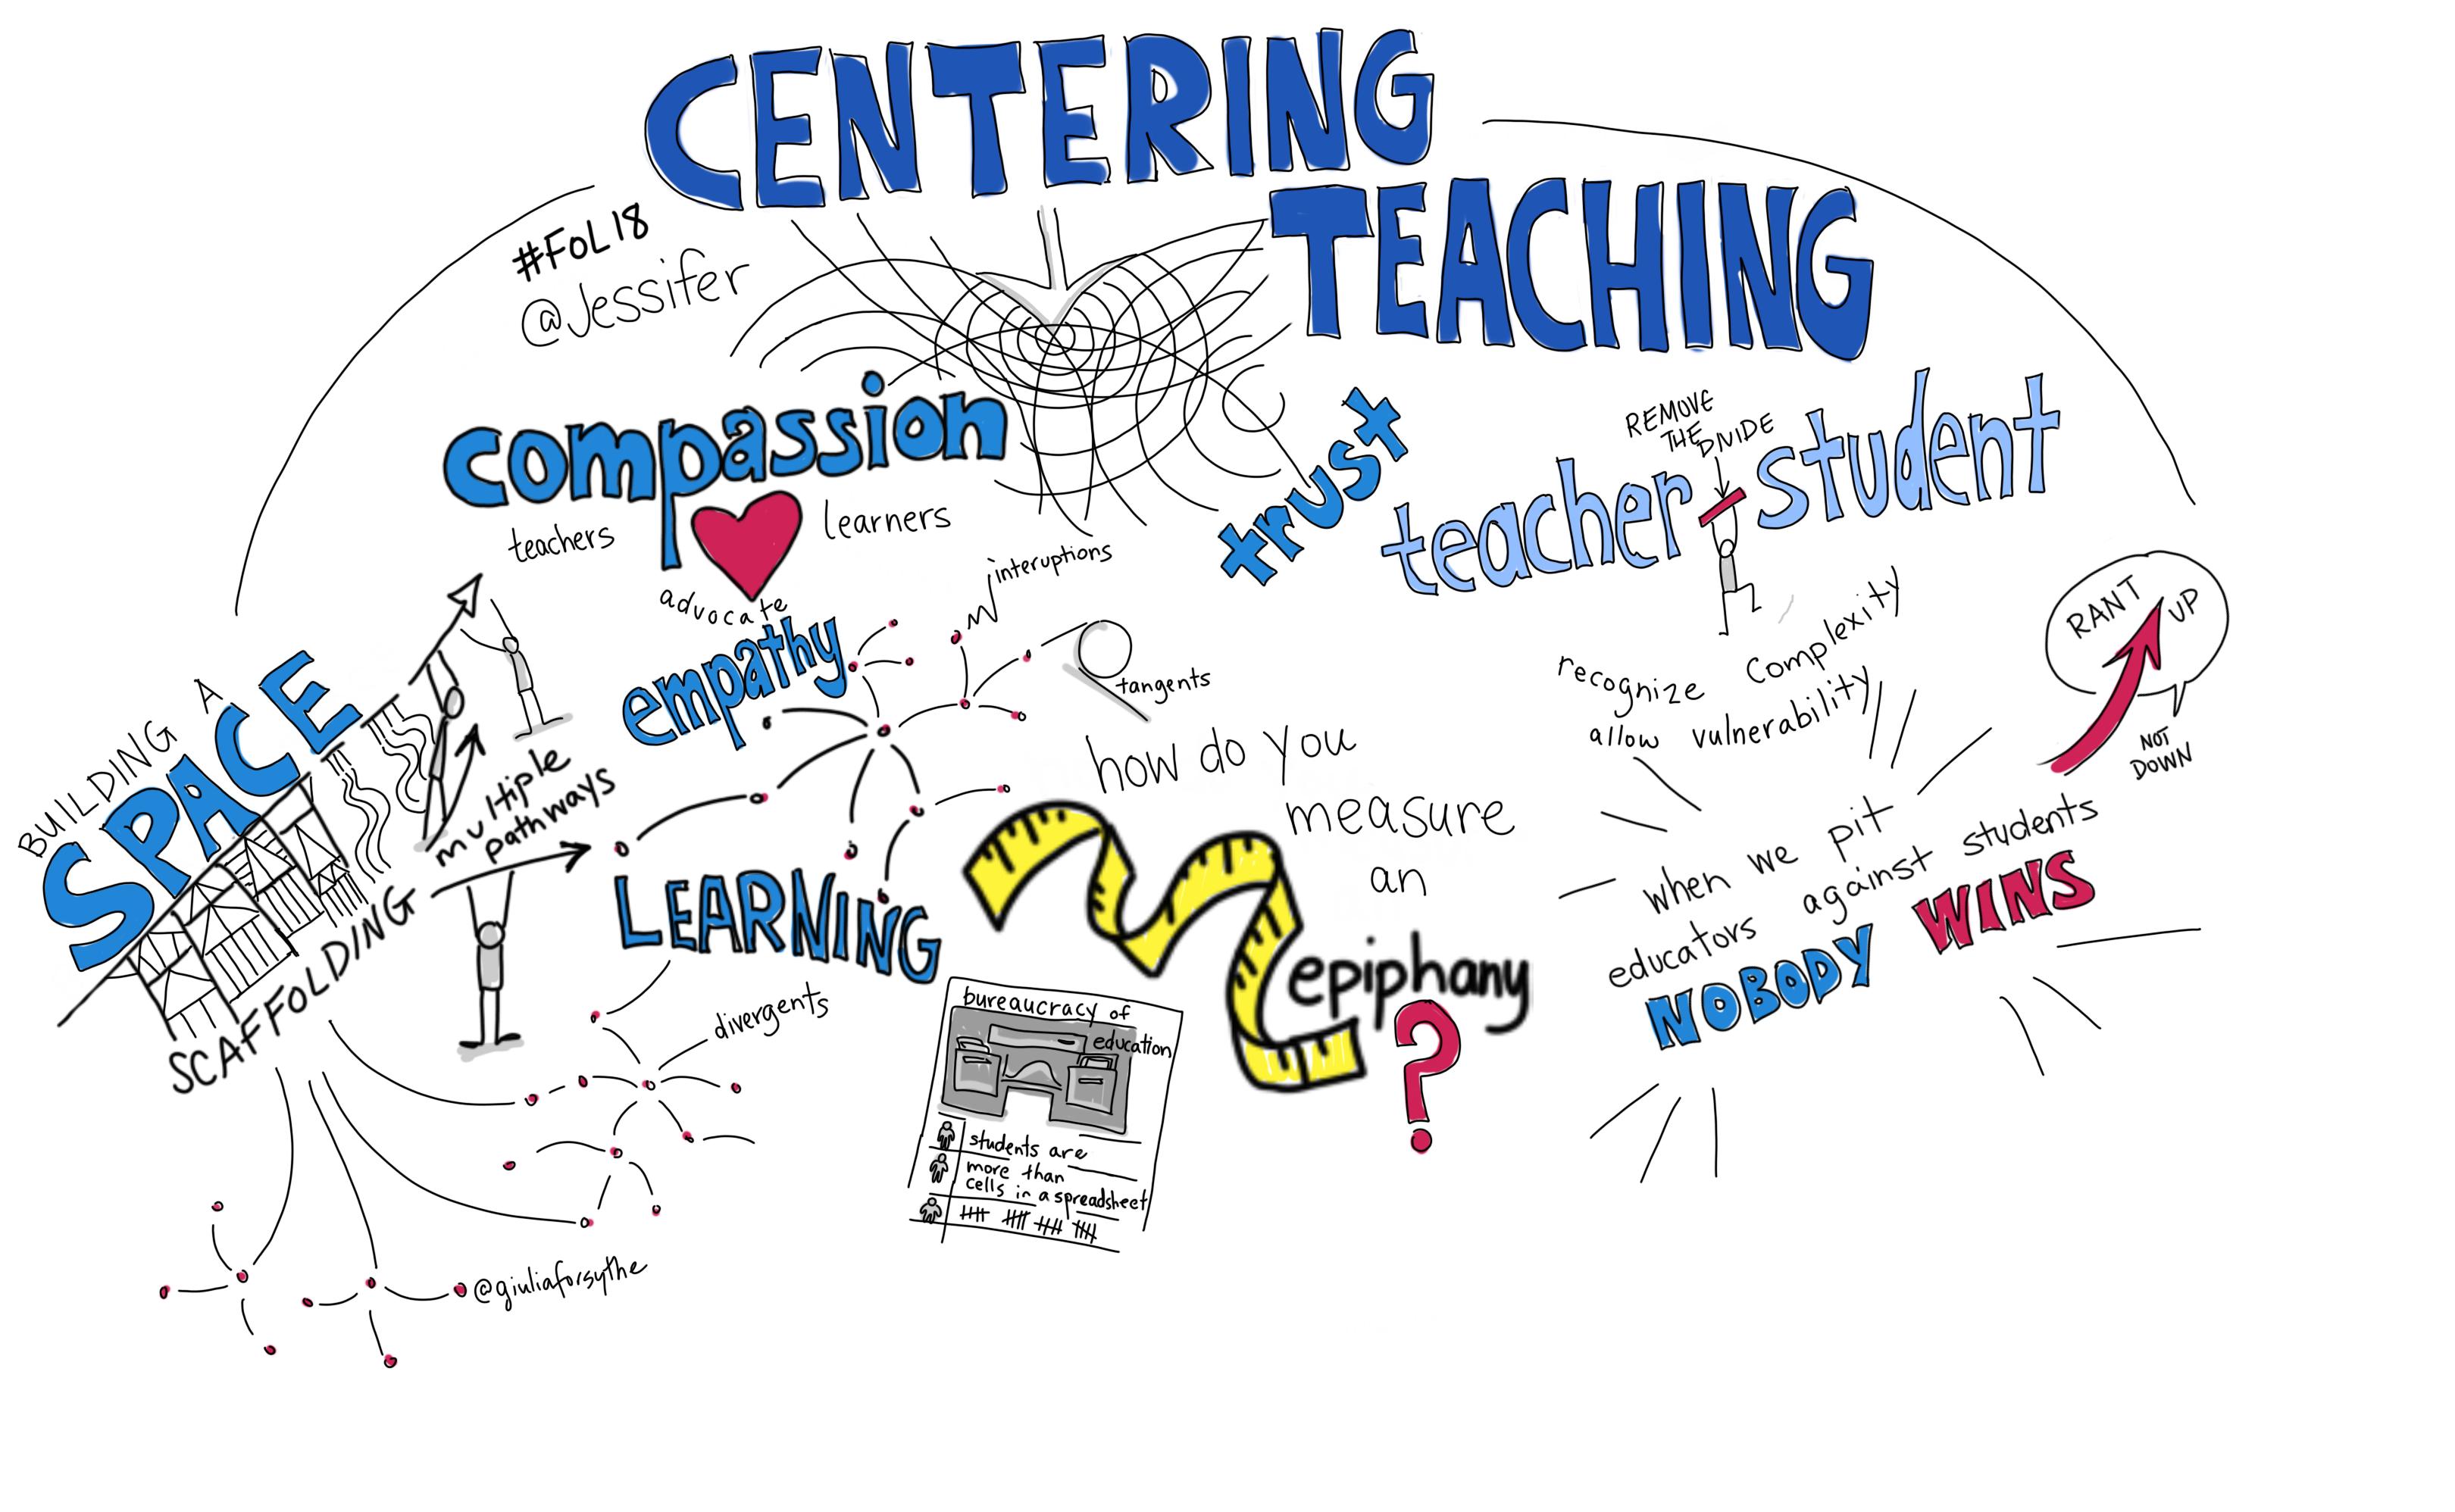 CENTERING
TEACHING
#FOL18
@Jessifer
compassion
teachers
learners
advocate
empathy
interuptions
tangents
trust
REMOVE
THE DIVIDE
teacher student
recognize complexity
allow vulnerability
RANT UP
NOT
DOWN
BUILDING A
SPACE
SCAFFOLDING
multiple
pathways
LEARNING
divergents
how do you
measure
an
epiphany
?
when we pit
educators against students
NOBODY WINS
bureaucracy of
education
students are
more than
cells in a spreadsheet
@giuliaforsythe